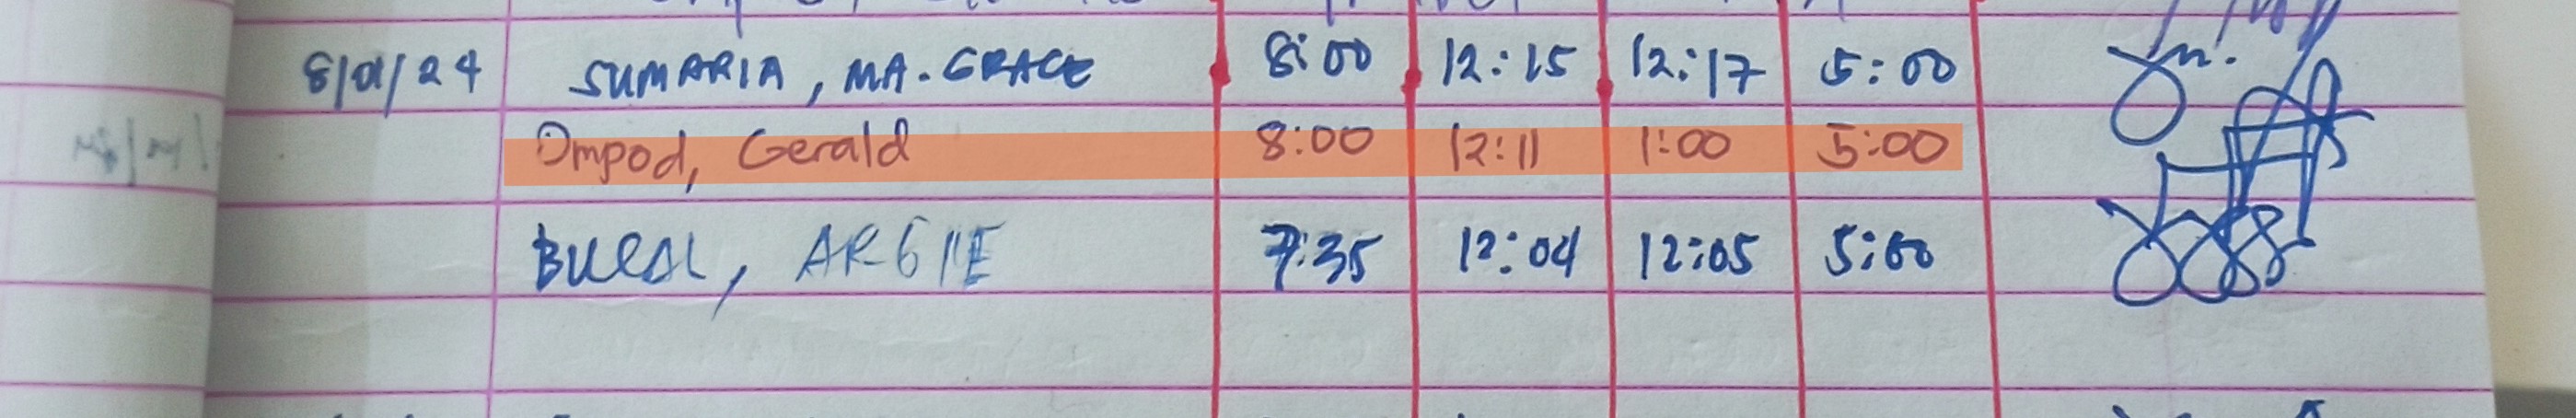 8/01/24 SUMARIA, MA. GRACE 8:00 12:15 12:17 5:00
Ompod, Gerald 8:00 12:11 1:00 5:00
BURAL, ARGIE 7:35 12:04 12:05 5:00